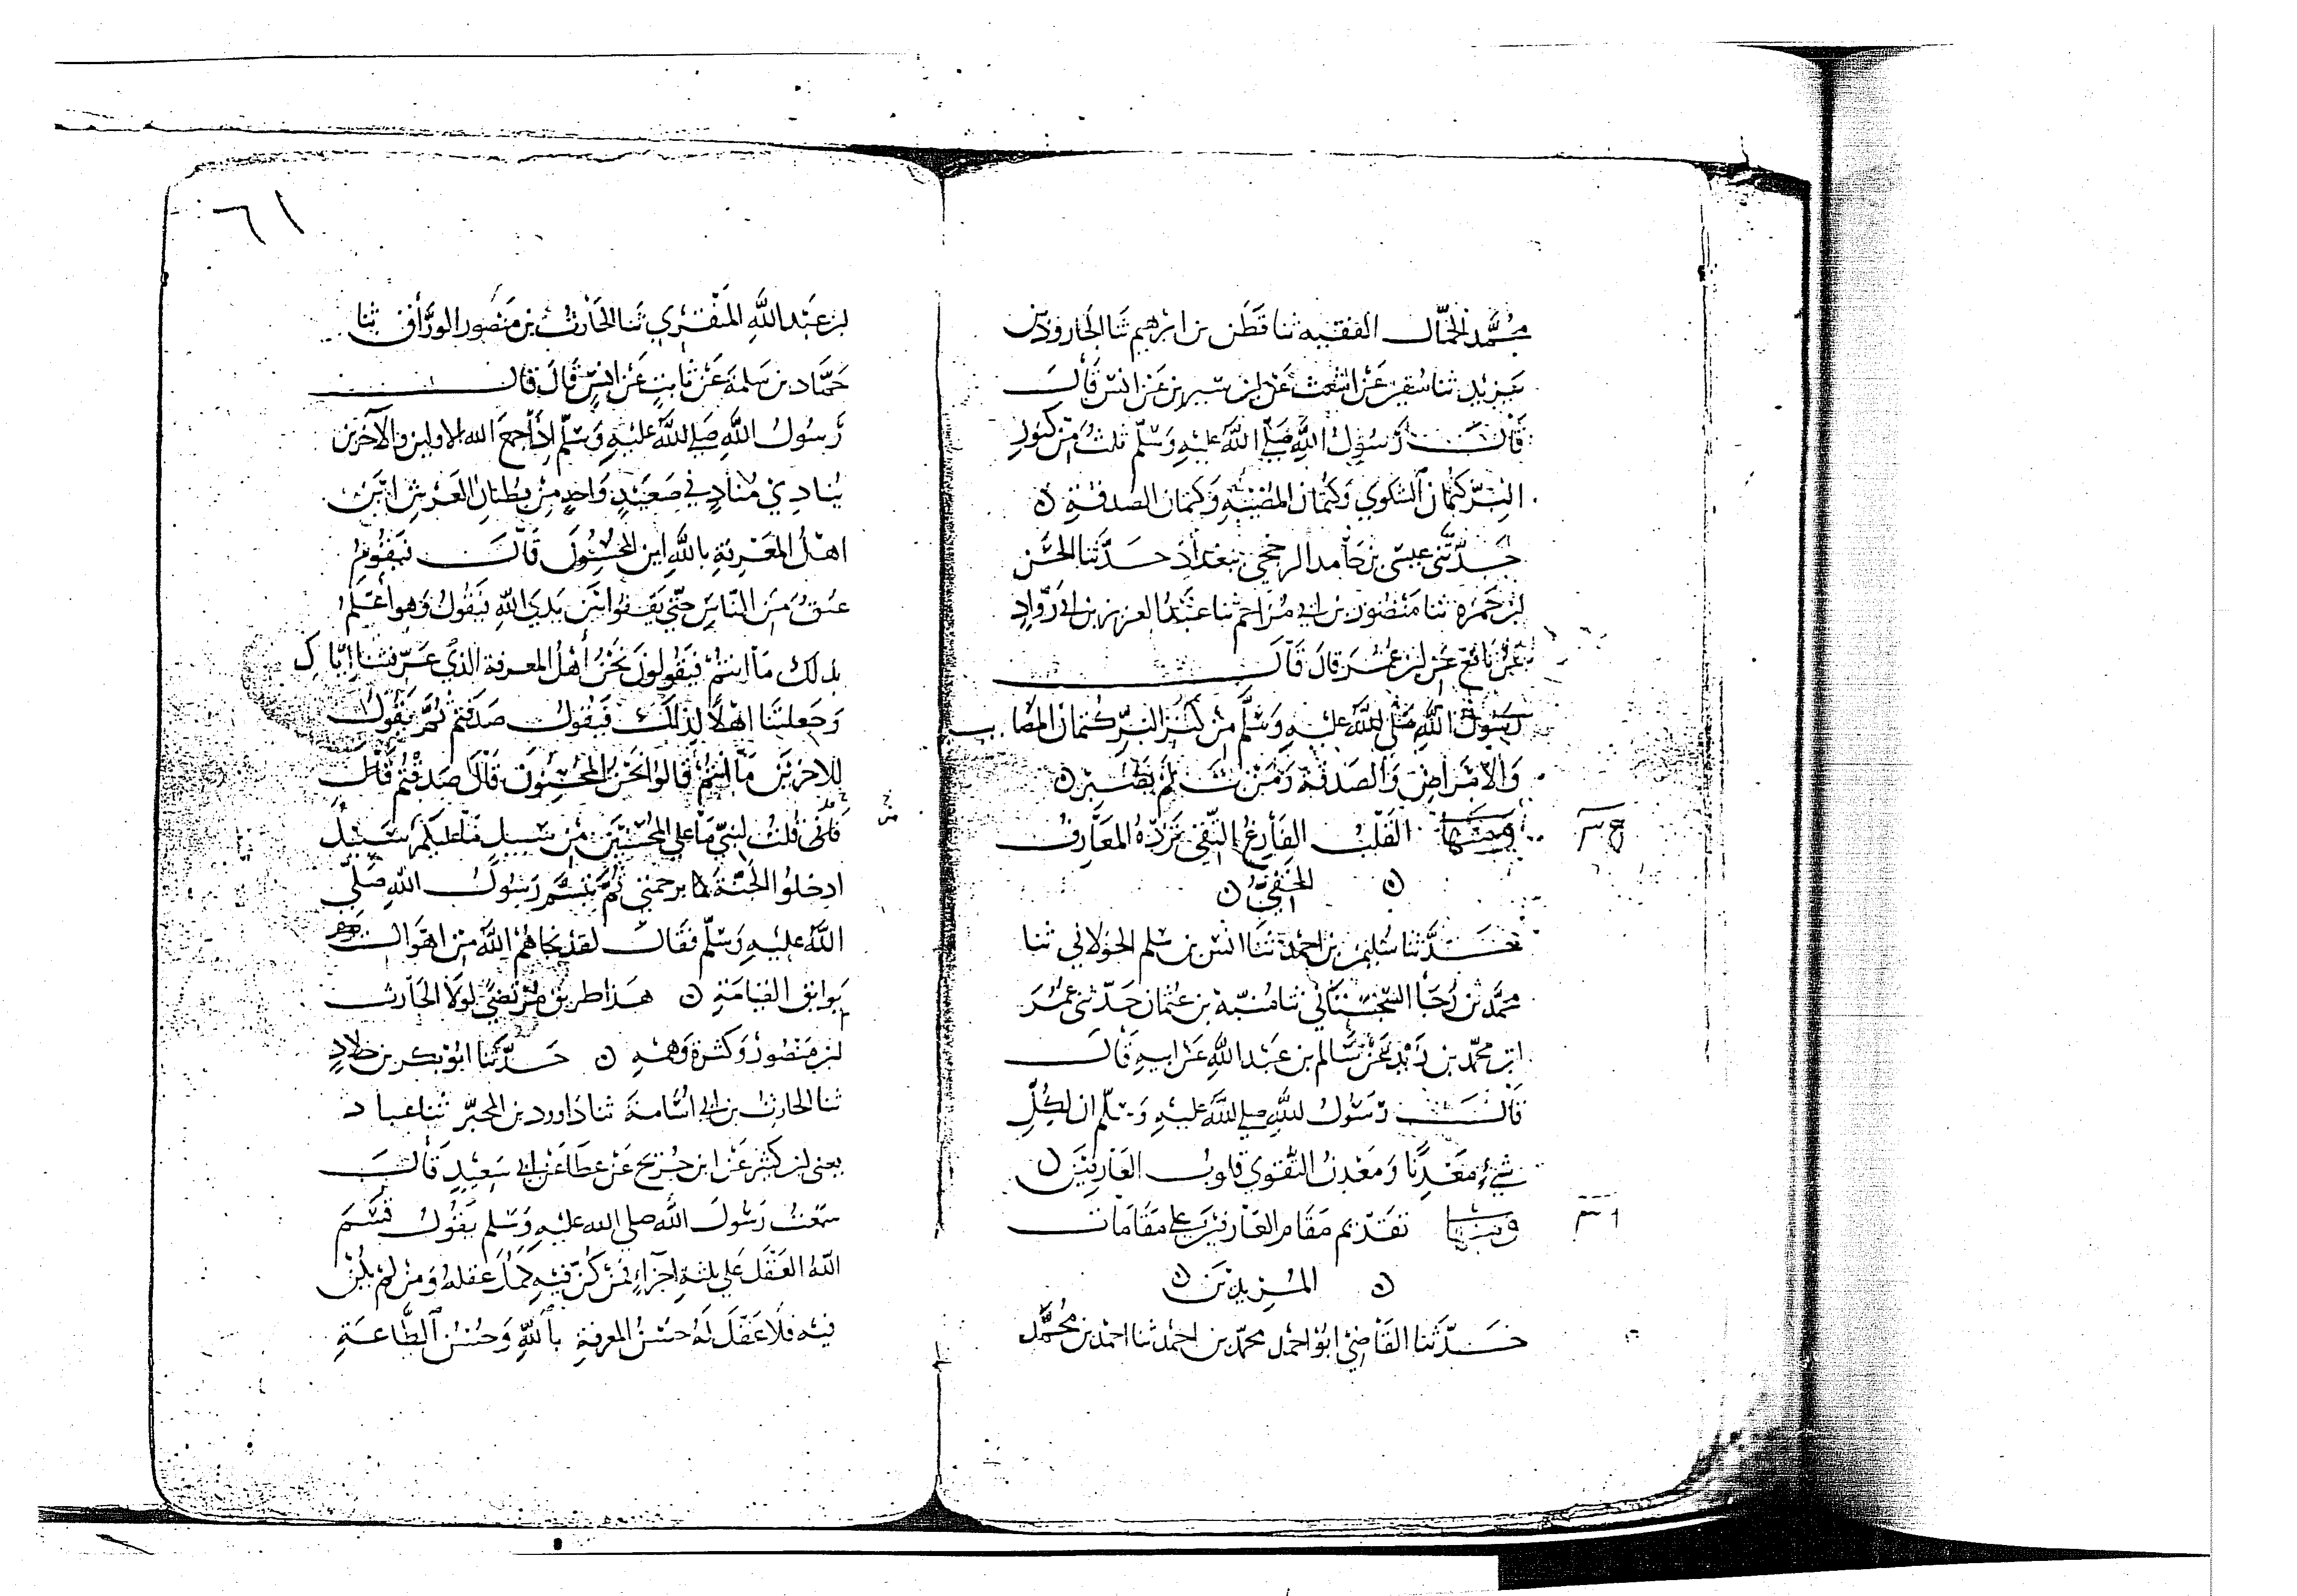 محمد الحمال الفقيه ثنا قطن بن ابرهيم ثنا الجارود بن
يزيد ثنا سفين عن اشعث عن ابن سيرين عن انس قال
قال رسول الله صلى الله عليه وسلم ثلث من كنوز
البر كتمان الشكوي وكتمان المصيبة وكتمان الصدقة ن
حدثني عيسى بن حامد الرخجي ببغداد حدثنا الحسن
ابن حمزة ثنا منصور بن ابي مزاحم ثنا عبد العزيز بن ابي رواد
عن نافع عن ابن عمر قال قال
رسول الله صلى الله عليه وسلم من كنز البر كتمان المصايب
والامراض والصدقة ومن بث لم يصبر ن
ومنها القلب الفارغ النقي ترده المعارف
ن الخفي ن
حدثنا سليمن بن احمد ثنا انس بن سلم الخولاني ثنا
محمد بن رجا السختياني ثنا منبه بن عثمان حدثني عمر
ابن محمد بن زيد عن سالم بن عبد الله عن ابيه قال
قال رسول الله صلى الله عليه وسلم ان لكل
شيء معدنا ومعدن التقوي قلوب العارفين ن
ومنها تقديم مقام العارفين على مقامات
ن المريدين ن
حدثنا القاضي ابو احمد محمد بن احمد ثنا احمد بن محمد
٦١
ابن عبد الله المنقري ثنا الحارث بن منصور الوراق ثنا
حماد بن سلمة عن ثابت عن انس قال قال
رسول الله صلى الله عليه وسلم اذا جمع الله الاولين والآخرين
ينادي مناد في صعيد واحد من بطنان العرش اين
اهل المعرفة بالله اين المحسنون قال فيقوم
عنق من الناس حتى يقفوا بين يدي الله فيقول وهو أعلم
بذلك ما انتم فيقولون نحن أهل المعرفة الذي عرفتنا إياك
وجعلتنا اهلا لذلك فيقول صدقتم ثم يقول
للاخرين ما انتم قالوا نحن المحسنون قال صدقتم قال
فاني قلت لنبيي ما على المحسنين من سبيل فما عليكم سبيل
ادخلوا الجنة برحمتي ثم تبسم رسول الله صلى
الله عليه وسلم فقال لقد نجاهم الله من اهوال
بوائق القيامة ن هذا طريق مرتضى لولا الحارث
ابن منصور وكثرة وهمه ن حدثنا ابو بكر بن خلاد
ثنا الحارث بن ابي اسامة ثنا داوود بن المحبر ثنا عباد
يعني ابن كثير عن ابن جريج عن عطا عن ابي سعيد قال
سمعت رسول الله صلى الله عليه وسلم يقول قسم
الله العقل على ثلثة اجزاء فمن كن فيه كمل عقله ومن لم يكن
فيه فلا عقل له حسن المعرفة بالله وحسن الطاعة